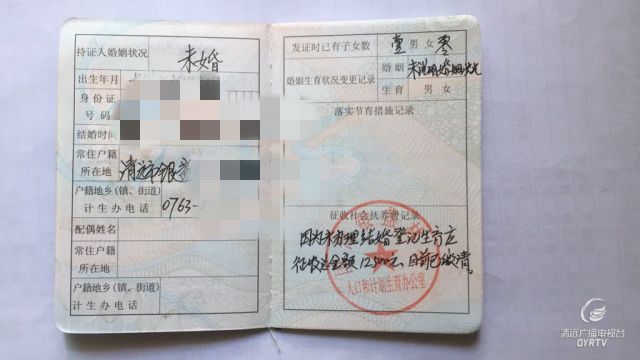 持证人婚姻状况
未婚
出生年月
身份证
号码
结婚时间
常住户籍
所在地
清远市
户籍地乡(镇、街道)
计生办电话
0763-
配偶姓名
常住户籍
所在地
户籍地乡(镇、街道)
计生办电话
发证时已有子女数 壹 男 女 零
婚姻生育状况变更记录
婚姻
生育 男 女
落实节育措施记录
征收社会抚养费记录
因为未办理结婚登记生育应
征收总金额12500元,目前已缴清
人口和计划生育办公室
清远广播电视台
QYRTV